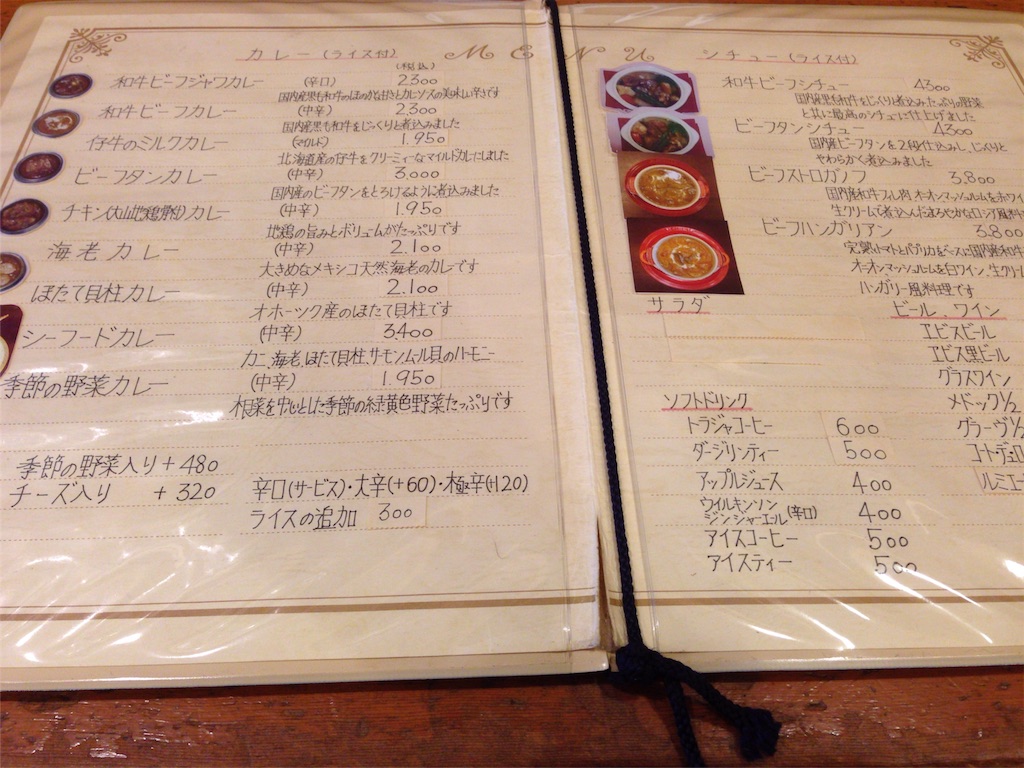 MENU
カレー(ライス付)
(税込)
和牛ビーフジャワカレー (辛口) 2300
和牛ビーフカレー (中辛) 2,300
国内産黒毛和牛をじっくりと煮込みました
仔牛のミルクカレー (マイルド) 1.950
北海道産の仔牛をクリーミィなマイルドカレーにしました
ビーフタンカレー (中辛) 3,000
国内産のビーフタンをとろけるように煮込みました
チキン(大山地鶏骨付)カレー (中辛) 1.950
地鶏の旨みとボリュムがたっぷりです
海老カレー (中辛) 2.100
大きめなメキシコ天然海老のカレーです
ほたて貝柱カレー (中辛) 2.100
オホーツク産のほたて貝柱です
シーフードカレー (中辛) 3,400
カニ、海老、ほたて貝柱、サモン、ムール貝のハーモニー
季節の野菜カレー (中辛) 1.950
根菜を中心とした季節の緑黄色野菜たっぷりです
季節の野菜入り+480
チーズ入り +320
辛口(サービス)・大辛(+60)・極辛(+120)
ライスの追加 300
シチュー(ライス付)
和牛ビーフシチュー 4300
国内産黒毛和牛をじっくりと煮込み、たっぷりの野菜
と共に最高のシチューに仕上げました
ビーフタンシチュー 4300
国内産ビーフタンを2段仕込みし、じっくりと
やわらかく煮込みました
ビーフストロガノフ 3,800
国内産和牛フィレ肉 オニオンマッシュルムをホワイ
生クリームで煮込んだまろやかなロシア風料
ビーフハンガリアン 3.800
完熟トマトとパプリカをベースに国内産和牛
オニオンマッシュルムを白ワイン、生クリー
ハンガリー風料理です
サラダ
ビール、ワイン
エビスビール
エビス黒ビール
グラスワイン
メドック1/2
グラーヴ1/2
コトデュロ
ルミエー
ソフトドリンク
トラジャコーヒー 600
ダージリンティー 500
アップルジュース 400
ウイルキンソン
ジンジャーエール(辛口) 400
アイスコーヒー 500
アイスティー 500